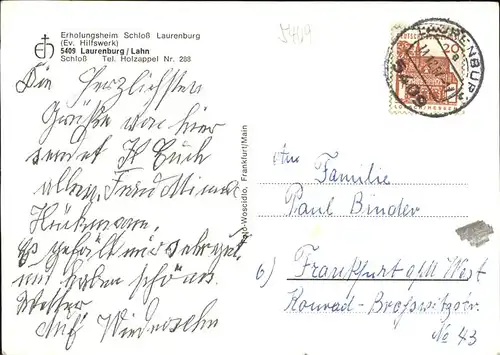 5409
Erholungsheim Schloß Laurenburg
(Ev. Hilfswerk)
5409 Laurenburg / Lahn
Schloß Tel. Holzappel Nr. 288
Die Herzlichsten
Grüße von hier
sendet Euch
allen Frau Minna
Es gefällt mir sehr gut
und haben schöns
Wetter
Auf Wiedersehn
Foto-Woscidlo, Frankfurt/Main
LAURENBURG
5409
20
An Familie
Paul Binder
6) Frankfurt a/M West
Konrad-Broßwitzstr.
No 43